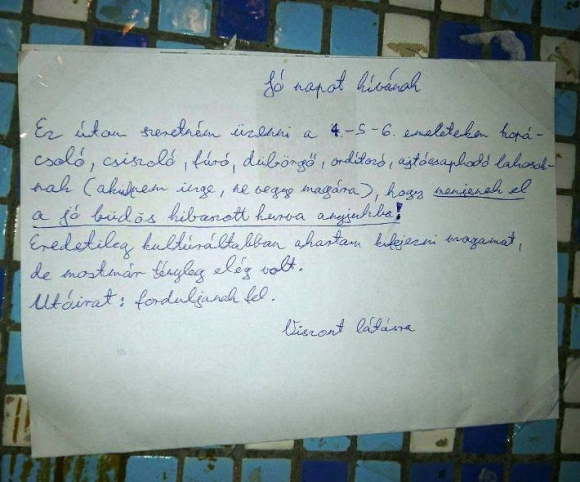 Jó napot kívánok
Ez úton szeretném üzenni a 4.-5-6. emeleteken kopá-
csoló, csiszoló, fúró, dübörgő, ordítozó, ajtócsapkodó lakosok-
nak (akinek nem inge, ne vegye magára), hogy menjenek el
a jó büdös kibaszott kurva anyjukba!
Eredetileg kultúráltabban akartam kifejezni magamat,
de mostmár tényleg elég volt.
Utóirat: forduljanak fel.
Viszont látásra